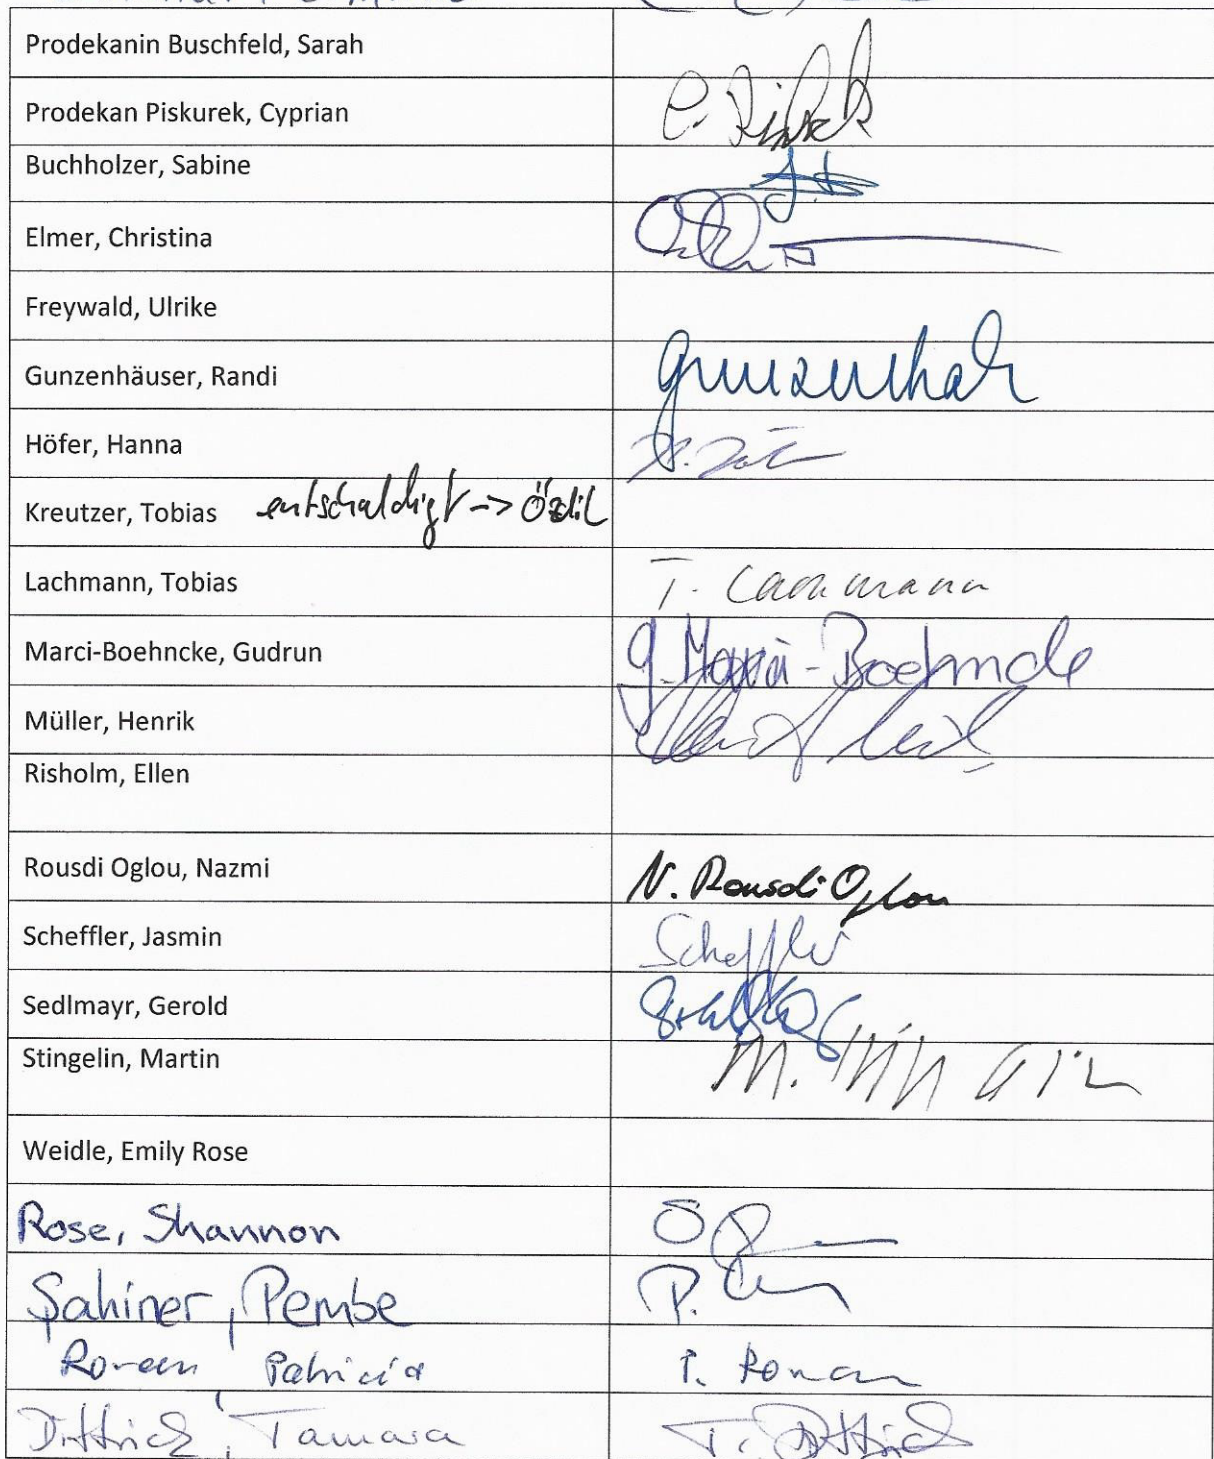 Prodekanin Buschfeld, Sarah
Prodekan Piskurek, Cyprian
Buchholzer, Sabine
Elmer, Christina
Freywald, Ulrike
Gunzenhäuser, Randi
Höfer, Hanna
Kreutzer, Tobias entschuldigt -> Özdil
Lachmann, Tobias T. Lachmann
Marci-Boehncke, Gudrun G. Marci-Boehncke
Müller, Henrik
Risholm, Ellen
Rousdi Oglou, Nazmi N. Rousdi Oglou
Scheffler, Jasmin Scheffler
Sedlmayr, Gerold
Stingelin, Martin
Weidle, Emily Rose
Rose, Shannon
Şahiner, Pembe
Roman Patricia P. Roman
Dittrich, Tamara T. Dittrich